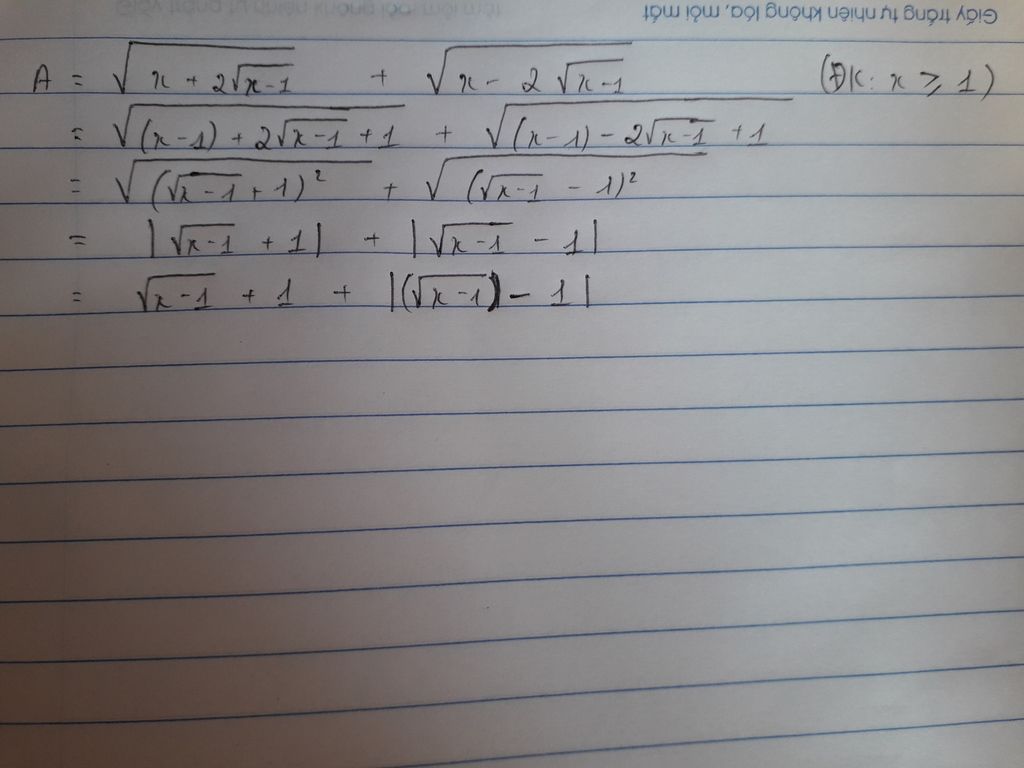 Giấy trắng tự nhiên không lóa, mỏi mắt
A = √(x + 2√(x-1)) + √(x - 2√(x-1)) (ĐK: x ⩾ 1)
= √((x-1) + 2√(x-1) + 1) + √((x-1) - 2√(x-1) + 1)
= √((√(x-1) + 1)²) + √((√(x-1) - 1)²)
= |√(x-1) + 1| + |√(x-1) - 1|
= √(x-1) + 1 + |(√(x-1)) - 1|